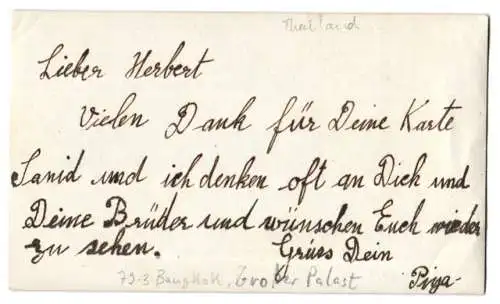 Thailand
Lieber Herbert
Vielen Dank für Deine Karte
Sanid und ich denken oft an Dich und
Deine Brüder und wünschen Euch wieder
zu sehen. Grüss Dein
Priya
79-3 Bangkok, Großer Palast